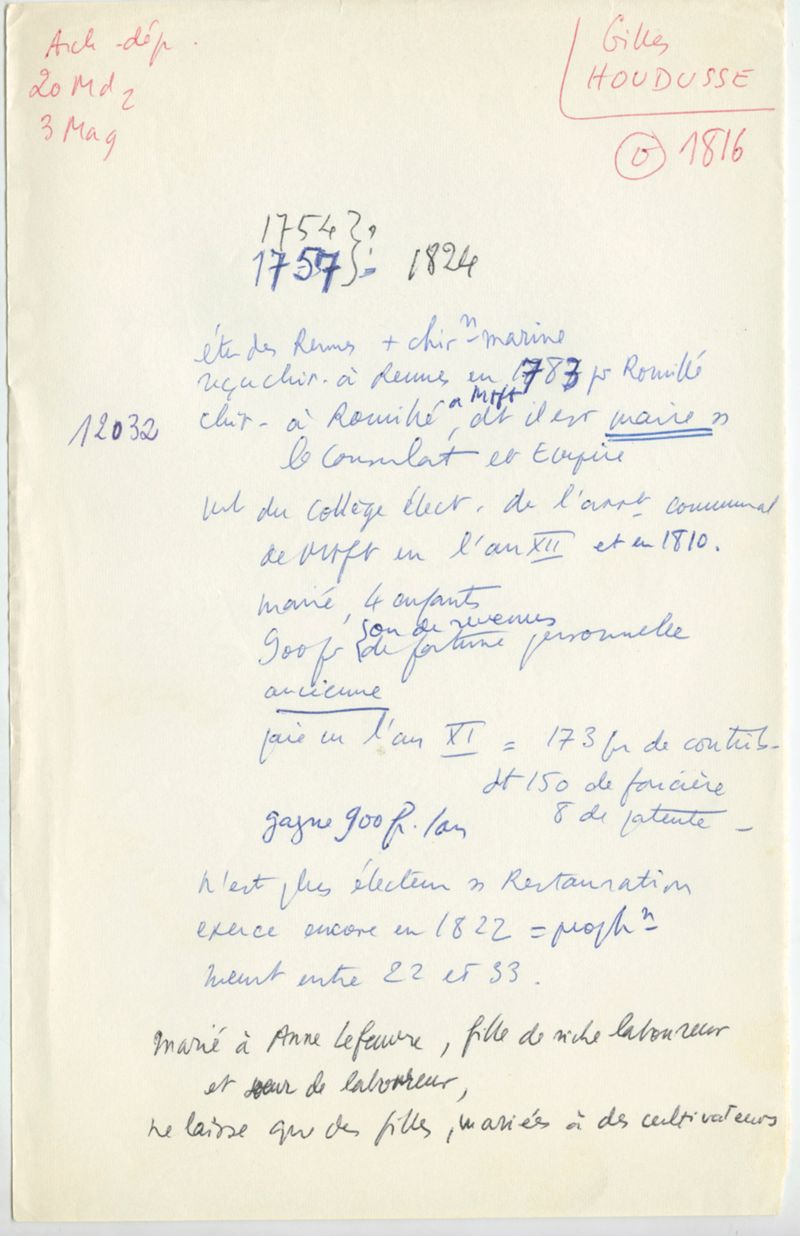 Arch - dép.
20 Md2
3 Mag
Gilles
HOUDUSSE
0 1816
1754 } ?
1757 } = 1824
études Rennes + chirn - marine
reçu chir. à Rennes en 1783 pr Romillé
12032
chir - à Romillé, à Mtft dt il est maire ss
le Consulat et Empire
du collège élect. de l'arrt communal
de Mtft en l'an XII et en 1810.
marié, 4 enfants
900 fr { ou de revenus
{ de fortune personnelle
ancienne
paie en l'an XI = 173 fr de contrib-
dt 150 de foncière
gagne 900 fr. / an 8 de patente -
N'est plus électeur ss Restauration
exerce encore en 1822 =
meurt entre 22 et 33.
Marié à Anne Lefeuvre, fille de riche laboureur
et soeur de laboureur,
ne laisse que des filles, mariées à des cultivateurs